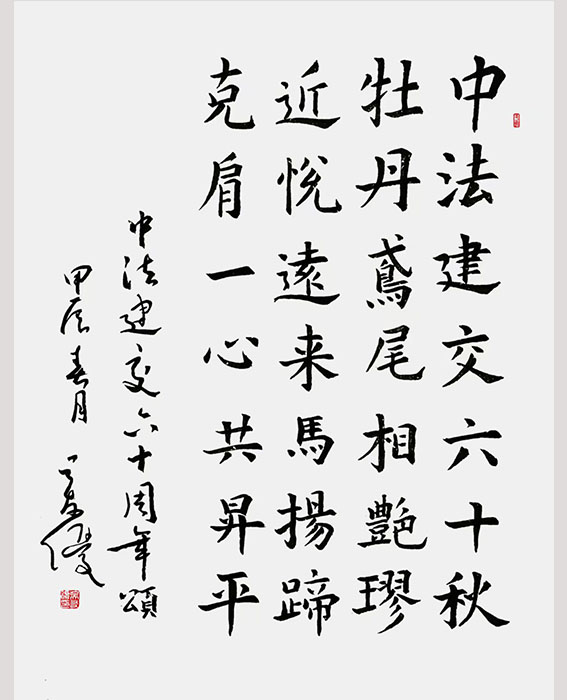 中法建交六十秋
牡丹鳶尾相艷璆
近悅遠来馬揚蹄
克肩一心共昇平
中法建交六十周年頌
甲辰春月